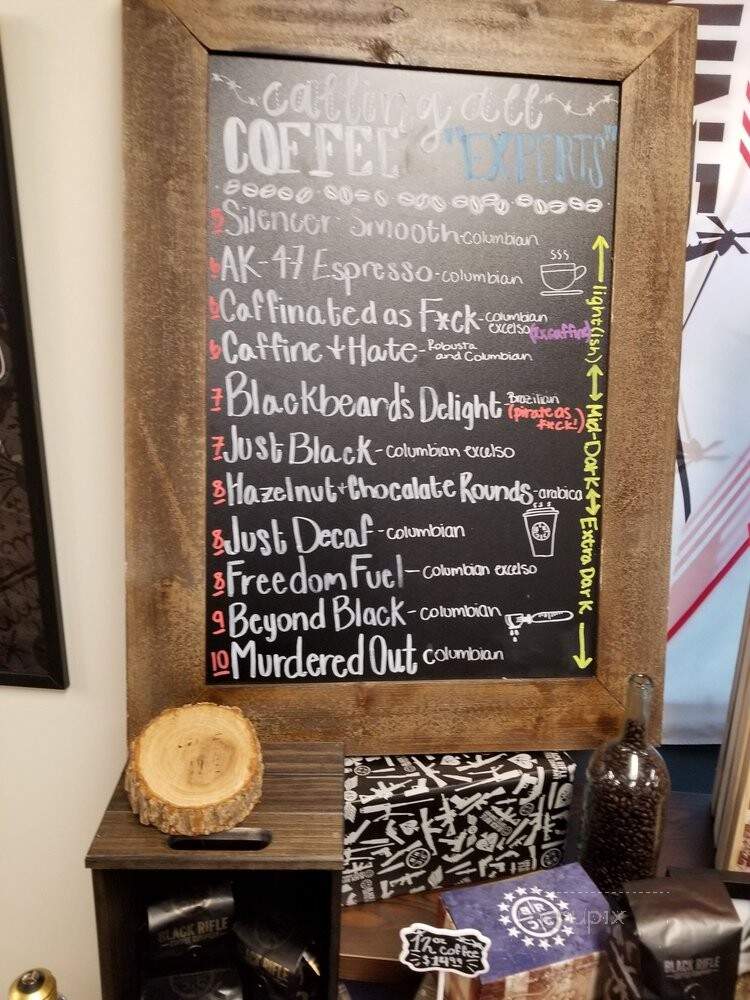 calling all
COFFEE "EXPERTS"
5 Silencer Smooth-columbian
6 AK-47 Espresso-columbian
6 Caffinated as F*ck-columbian excelso (2x caffine)
6 Caffine + Hate-Robusta and Columbian
7 Blackbeard's Delight Brazilian (pirate as f*ck!)
7 Just Black-columbian excelso
8 Hazelnut+Chocolate Rounds-arabica
8 Just Decaf-columbian
8 Freedom Fuel-columbian excelso
9 Beyond Black-columbian
10 Murdered Out columbian
light(ish)
Mid-Dark
Extra Dark
BLACK RIFLE
BLACK RIFLE
12oz coffee
$14.99
BRCC
BLACK RIFLE